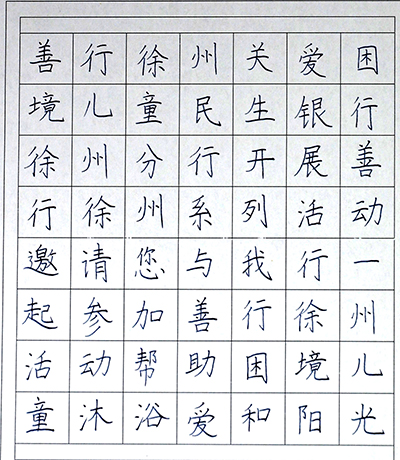 善行徐州关爱困
境儿童民生银行
徐州分行开展善
行徐州系列活动
邀请您与我行一
起参加善行徐州
活动帮助困境儿
童沐浴爱和阳光